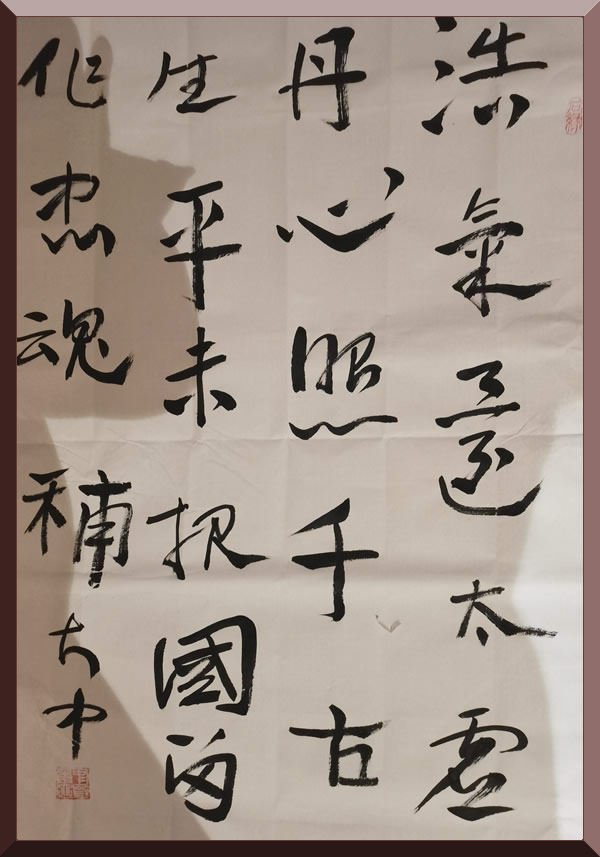 浩氣還太虛
丹心照千古
生平未报國留
作忠魂補
大中